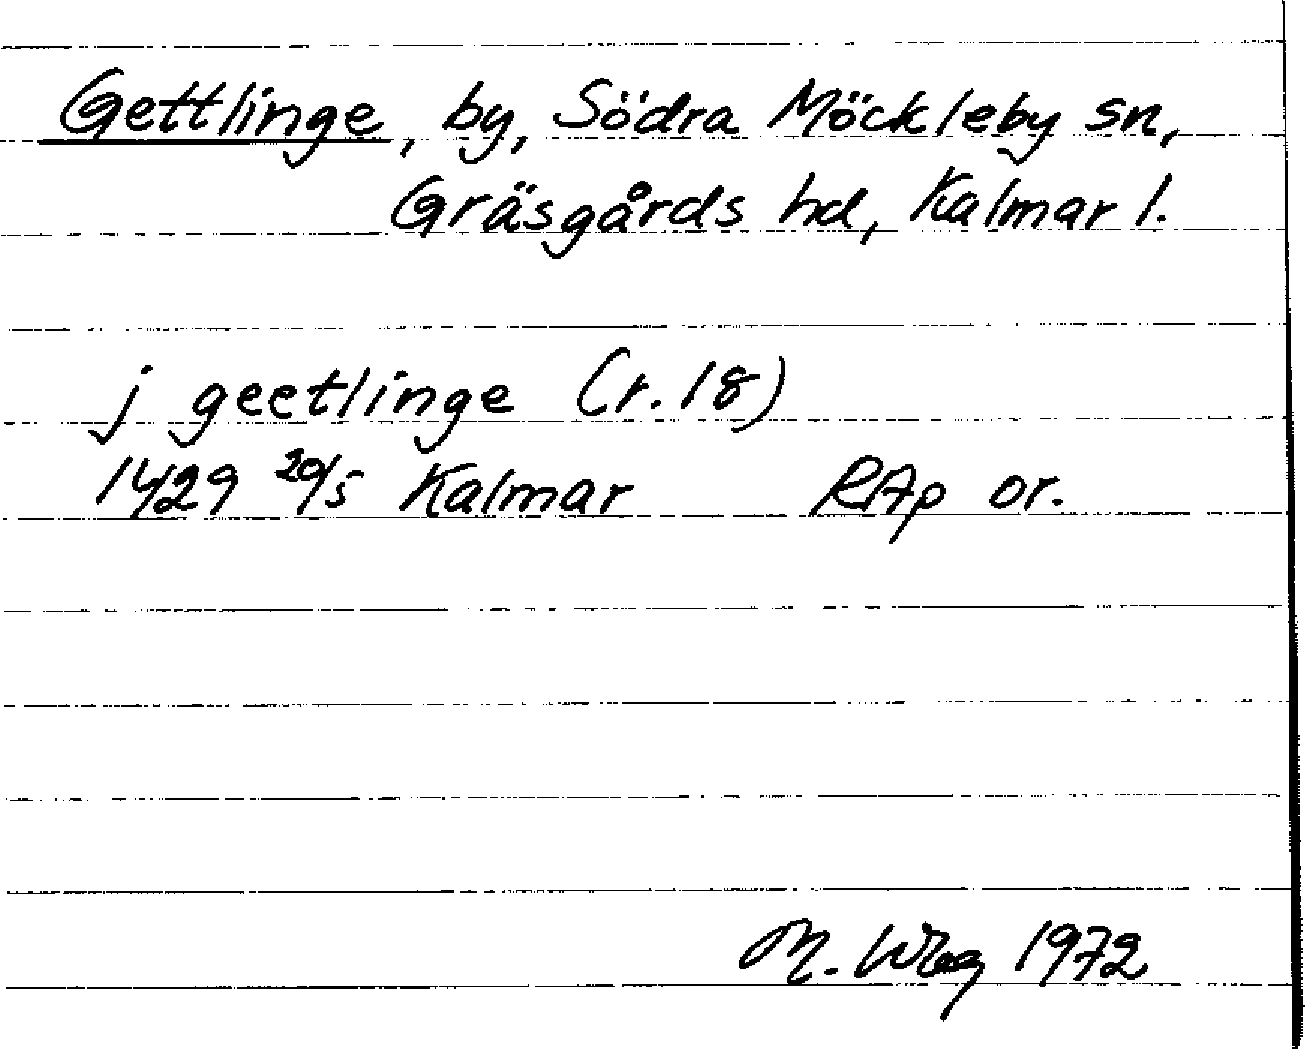 Gettlinge, by, Södra Möckleby sn,
Gräsgårds hd, Kalmar l.
j geetlinge (r. 18)
1429 20/5 Kalmar RAp or.
M. 1972